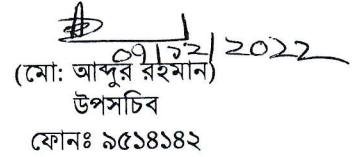 09/12/2022
(মো: আব্দুর রহমান)
উপসচিব
ফোনঃ ৯৫১৪১৪২